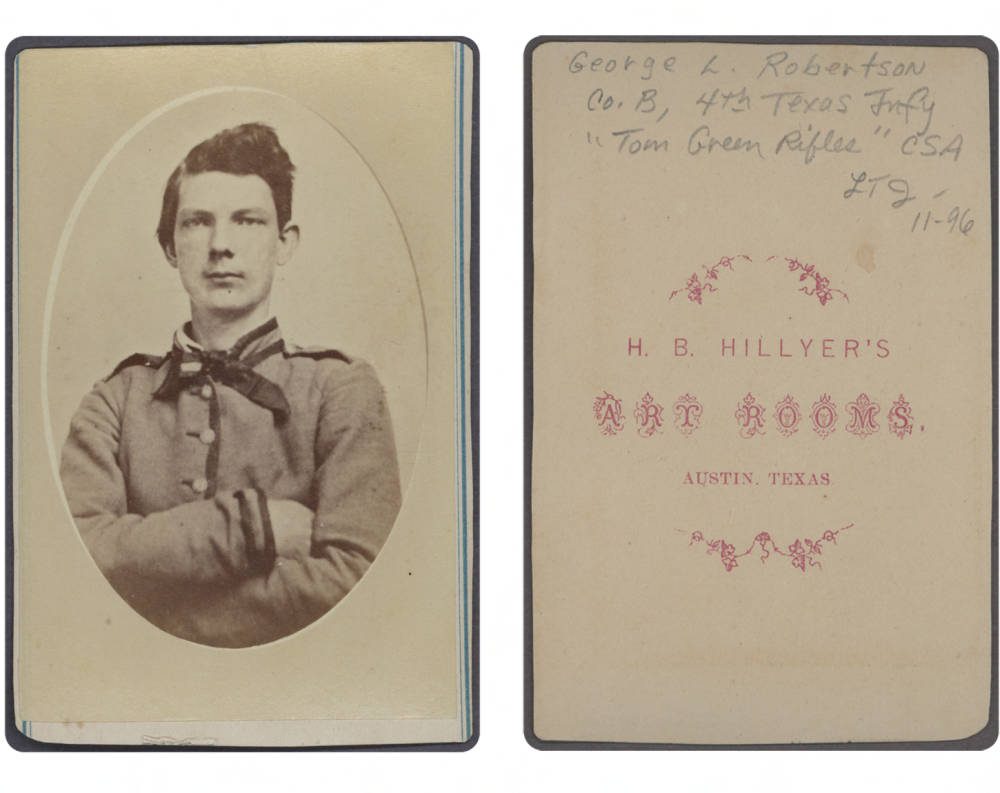 George L. Robertson
Co. B, 4th Texas Infy
"Tom Green Rifles" CSA
LTJ -
11-96
H. B. HILLYER'S
ART ROOMS.
AUSTIN, TEXAS